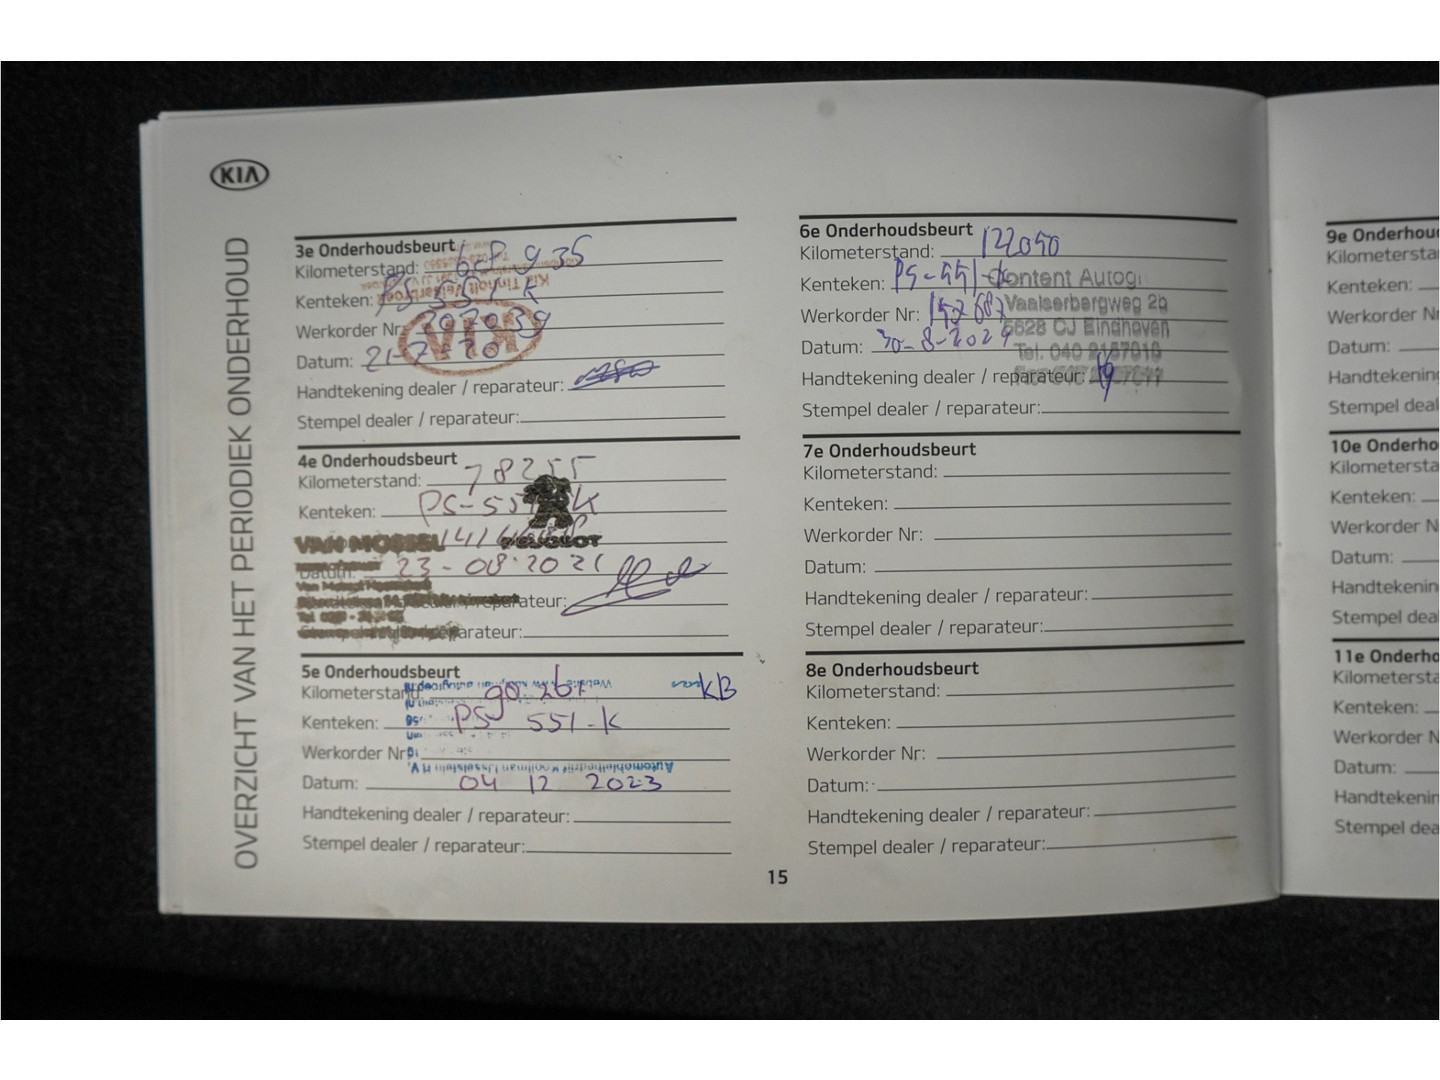 KIA
OVERZICHT VAN HET PERIODIEK ONDERHOUD
3e Onderhoudsbeurt
Kilometerstand: 935
Kenteken: PS-551-K
Kia Tinholt
Werkorder Nr:
KIA
Datum: 21-7-20
Handtekening dealer / reparateur:
Stempel dealer / reparateur:
4e Onderhoudsbeurt
Kilometerstand: 78255
Kenteken: PS-551-K
VAN MOSSEL PEUGEOT
Datum: 23-08-2021
reparateur:
reparateur:
5e Onderhoudsbeurt
Kilometerstand: 90.267 KB
Kenteken: PS 551-K
Werkorder Nr:
Automobielbedrijf IJsselstein B.V.
Datum: 04 12 2023
Handtekening dealer / reparateur:
Stempel dealer / reparateur:
6e Onderhoudsbeurt
Kilometerstand: 122050
Kenteken: PS-551-K Content Autog
Werkorder Nr: Vaalserbergweg 2b
5628 CJ Eindhoven
Datum: 30-8-2024
Tel. 040
Handtekening dealer / reparateur:
Stempel dealer / reparateur:
7e Onderhoudsbeurt
Kilometerstand:
Kenteken:
Werkorder Nr:
Datum:
Handtekening dealer / reparateur:
Stempel dealer / reparateur:
8e Onderhoudsbeurt
Kilometerstand:
Kenteken:
Werkorder Nr:
Datum:
Handtekening dealer / reparateur:
Stempel dealer / reparateur:
15
9e Onderhou
Kilometersta
Kenteken:
Werkorder N
Datum:
Handtekening
Stempel deal
10e Onderho
Kilometersta
Kenteken:
Werkorder N
Datum:
Handtekenin
Stempel dea
11e Onderho
Kilometersta
Kenteken:
Werkorder N
Datum:
Handtekenin
Stempel dea